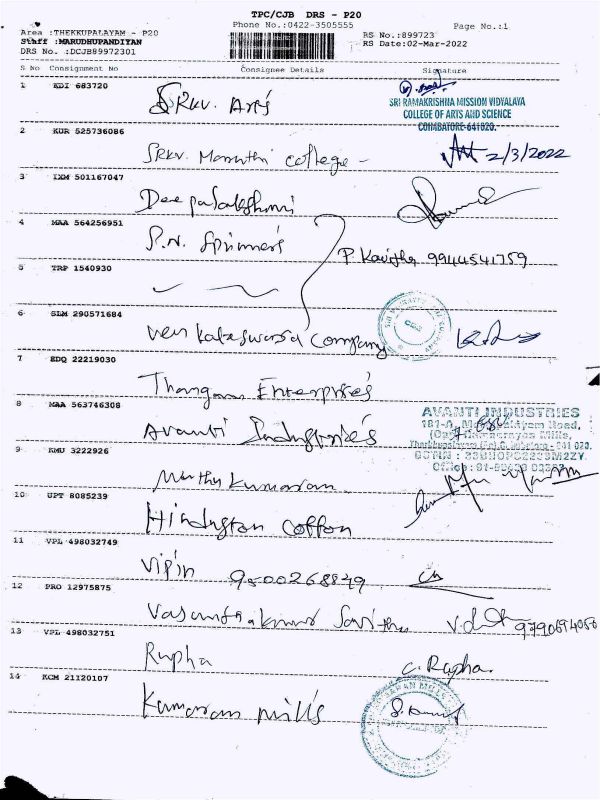 TPC/CJB DRS - P20
Area :THEKKUPALAYAM - P20
Phone No.:0422-3505555
Page No.:1
Staff :MARUDHUPANDIYAN
RS No.:899723
DRS No. :DCJB89972301
RS Date:02-Mar-2022
S No Consignment No Consignee Details Signature
1 KDI 683720
SRKV. Arts
SRI RAMAKRISHNA MISSION VIDYALAYA
COLLEGE OF ARTS AND SCIENCE
COIMBATORE-641020.
2 KUR 525736086
SRKV. Maruthi College -
2/3/2022
3 IXM 501167047
Deepalakshmi
4 MAA 564256951
P.N. Spinners
P. Kavitha 9944541759
5 TRP 1540930
6 SLM 290571684
Venkateswara Company
7 EDQ 22219030
Thangam Enterprises
8 MAA 563746308
Avanti Industries
AVANTI INDUSTRIES
9 KMU 3222926
Muthu Kumaran
10 UPT 8085239
Hindustan Cotton
11 VPL 498032749
Vipin
12 PRO 12975875
Vasanthakumar Savitha
13 VPL 498032751
Rupha C. Rupha
14 KCM 21120107
Kumaran Mills